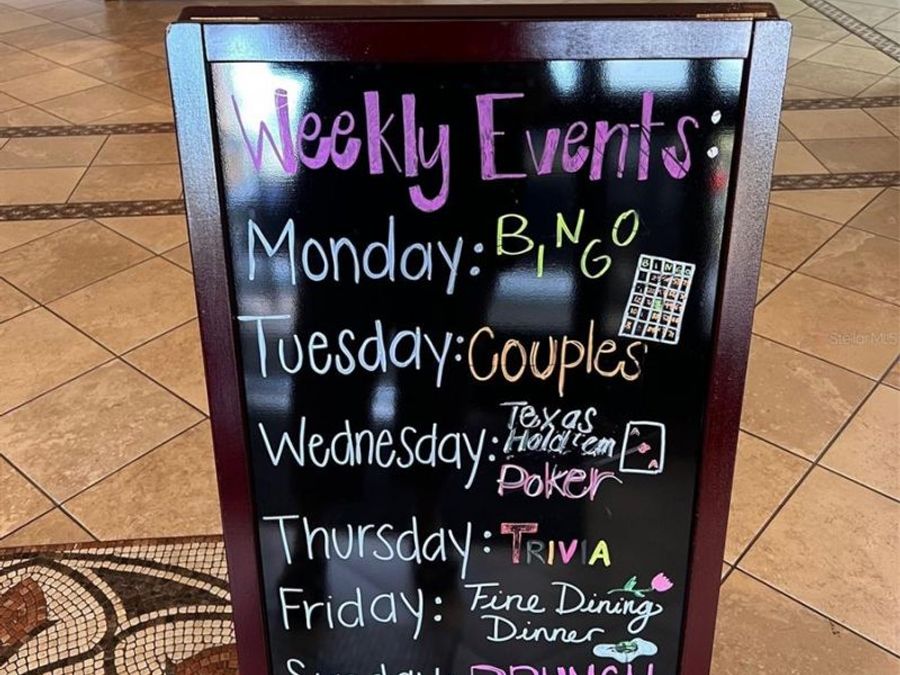 Weekly Events:
Monday: BINGO
BINGO
Tuesday: Couples
Wednesday: Texas
Hold'em
Poker
Thursday: TRIVIA
Friday: Fine Dining
Dinner
Sunday BRUNCH
Stellar MLS